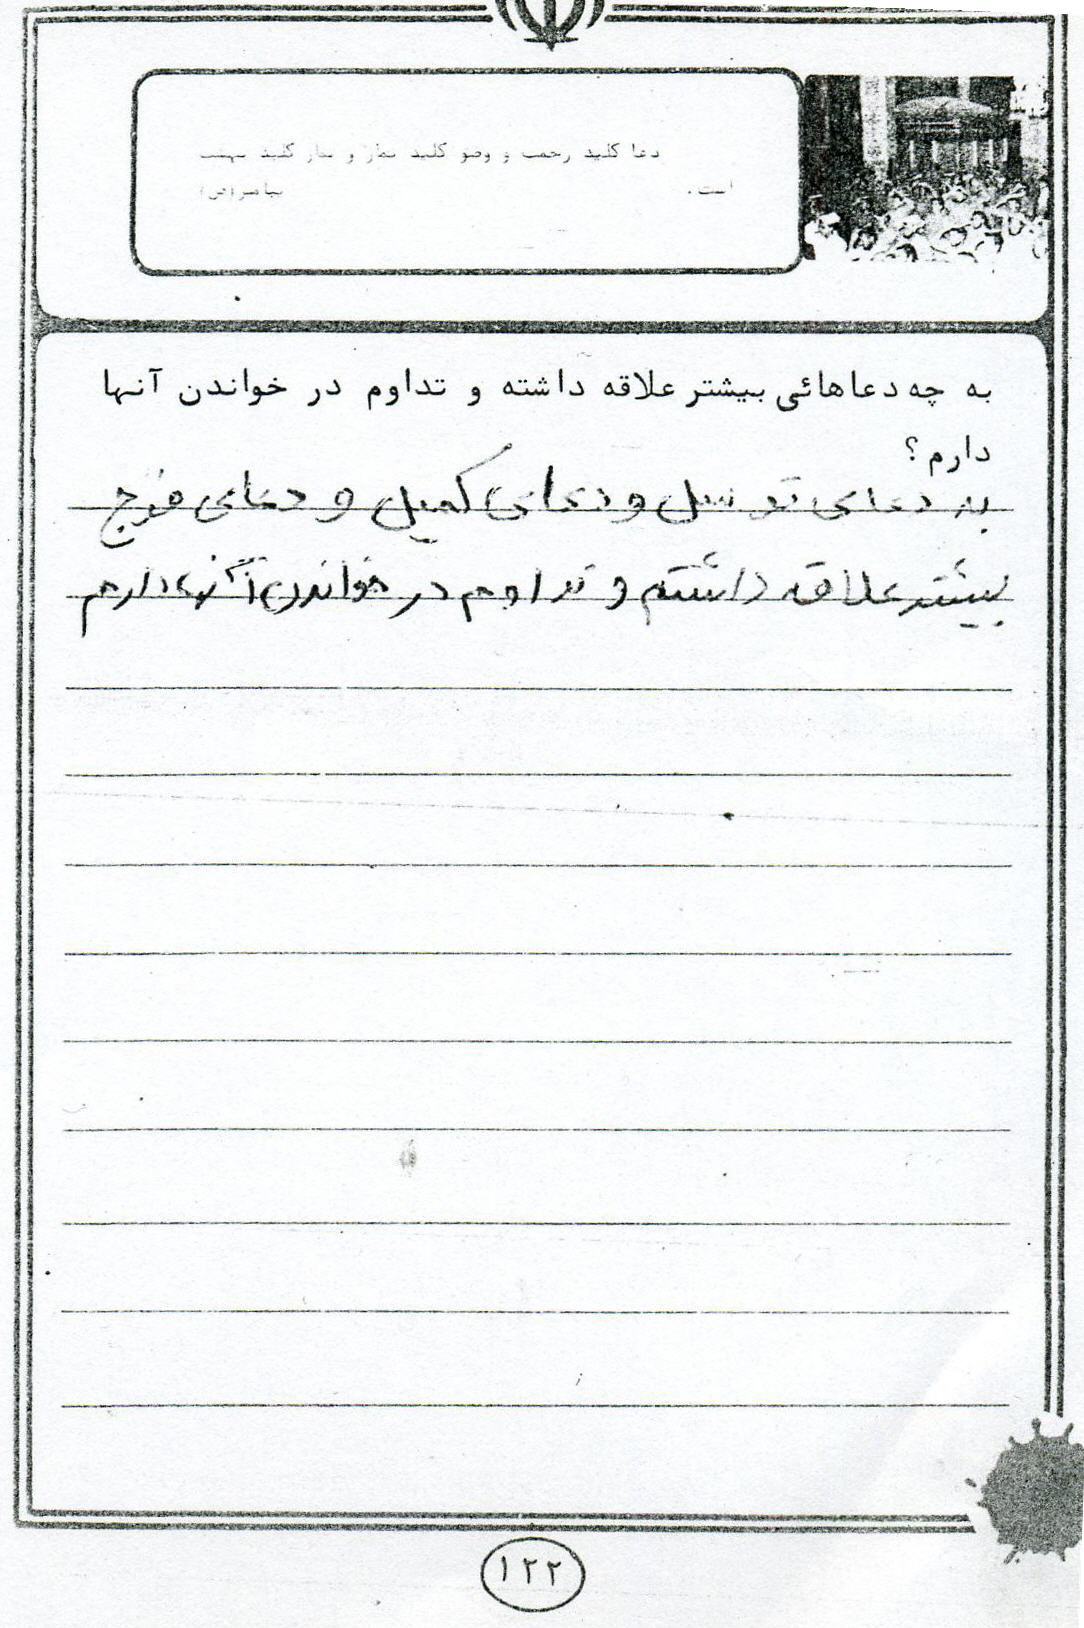 دعا کلید رحمت و وضو کلید نماز و نماز کلید بهشت
است . پیامبر(ص)
به چه دعاهائی بیشتر علاقه داشته و تداوم در خواندن آنها
دارم؟
به دعای توسل و دعای کمیل و دعای فرج
بیشتر علاقه داشتم و تداوم در خواندن آنها دارم
۱۲۲